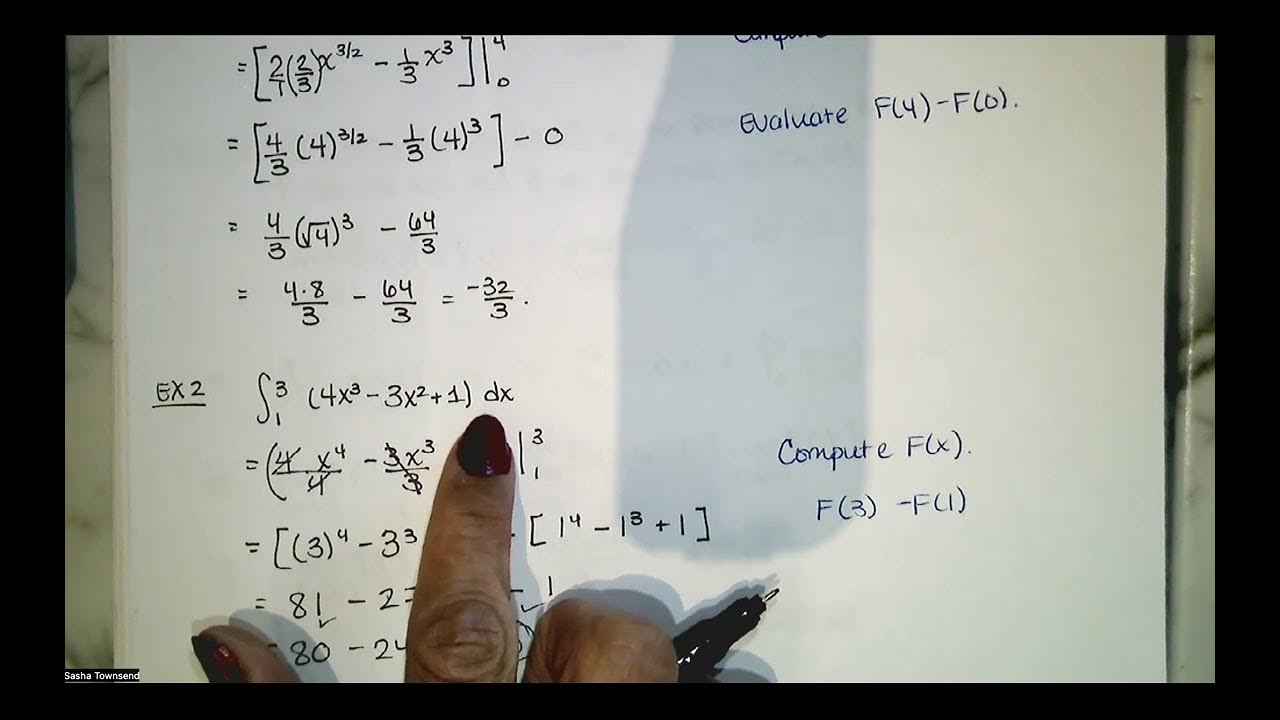 = [2/1(2/3)x^3/2 - 1/3 x^3]|_0^4
Evaluate F(4)-F(0).
= [4/3 (4)^3/2 - 1/3 (4)^3] - 0
= 4/3 (√4)^3 - 64/3
= 4·8/3 - 64/3 = -32/3.
EX 2 ∫_1^3 (4x^3 - 3x^2 + 1) dx
= (4 x^4/4 - 3x^3/3 |_1^3
Compute F(x).
F(3) -F(1)
= [(3)^4 - 3^3 [1^4 - 1^3 + 1]
= 81 - 2 - 1
= 80 - 24
Sasha Townsend